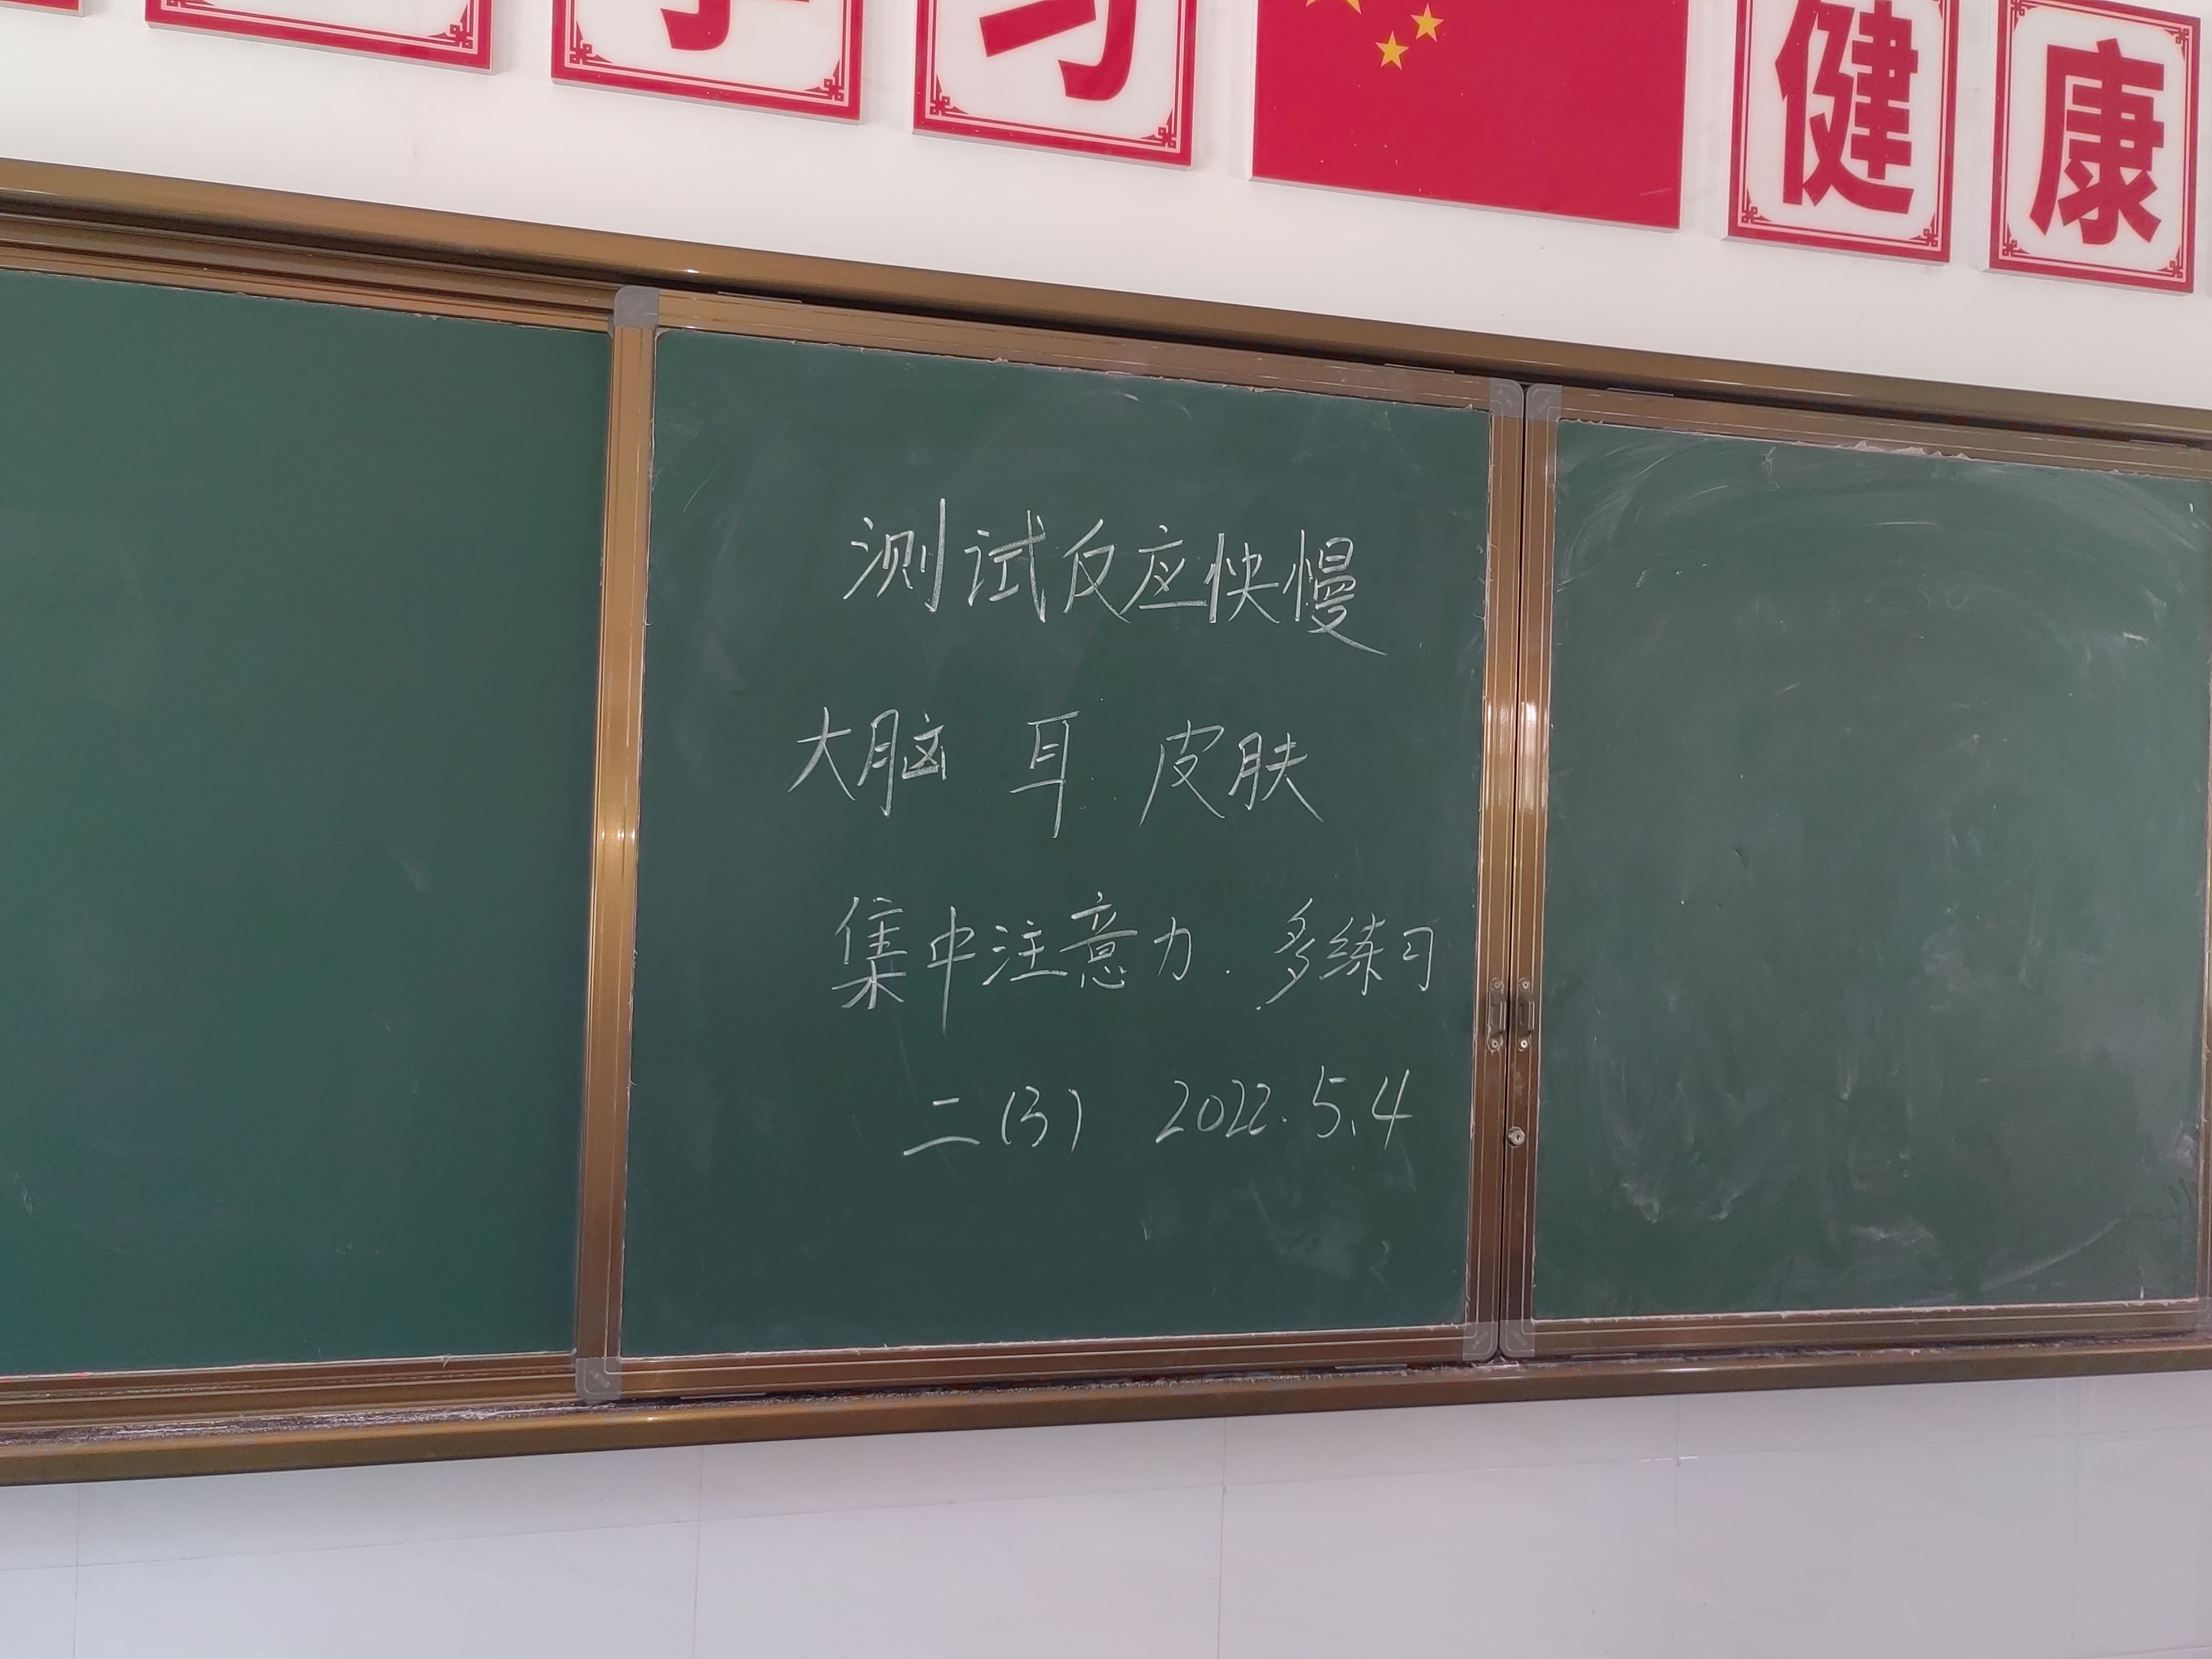 学习 健康
测试反应快慢
大脑 耳 皮肤
集中注意力. 多练习
二(3) 2022.5.4